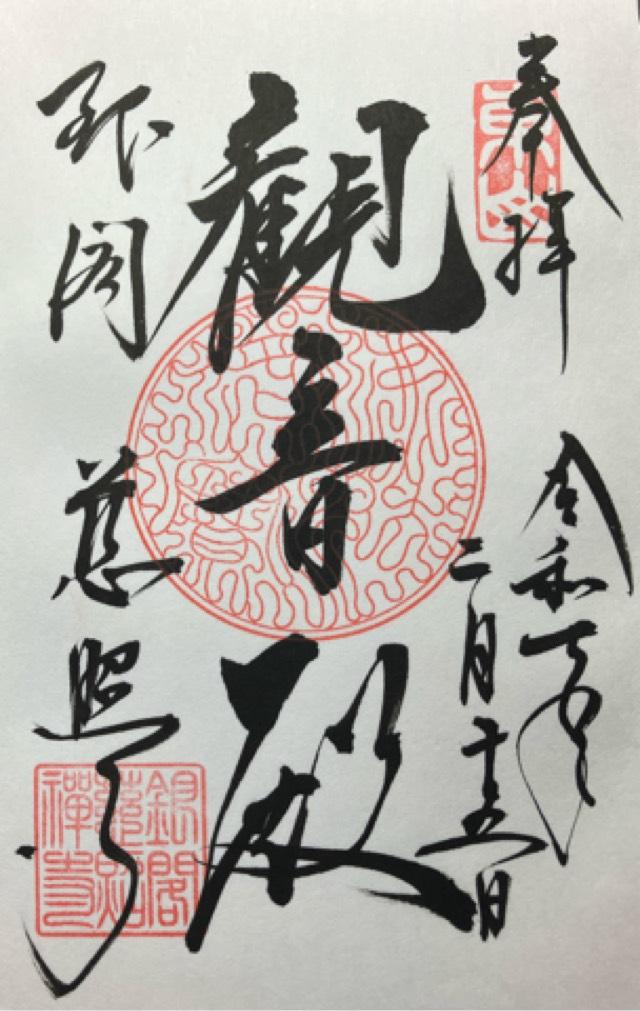 奉拝
令和 年
二月十五日
觀音殿
銀閣
慈照寺
銀閣
慈照
禪寺